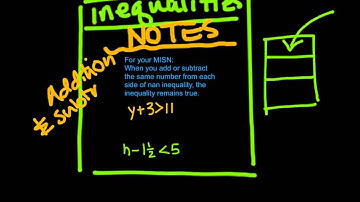 inequalities
NOTES
Addition
& subtr
For your MISN:
When you add or subtract
the same number from each
side of nan inequality, the
inequality remains true.
y+3>11
h-1½<5